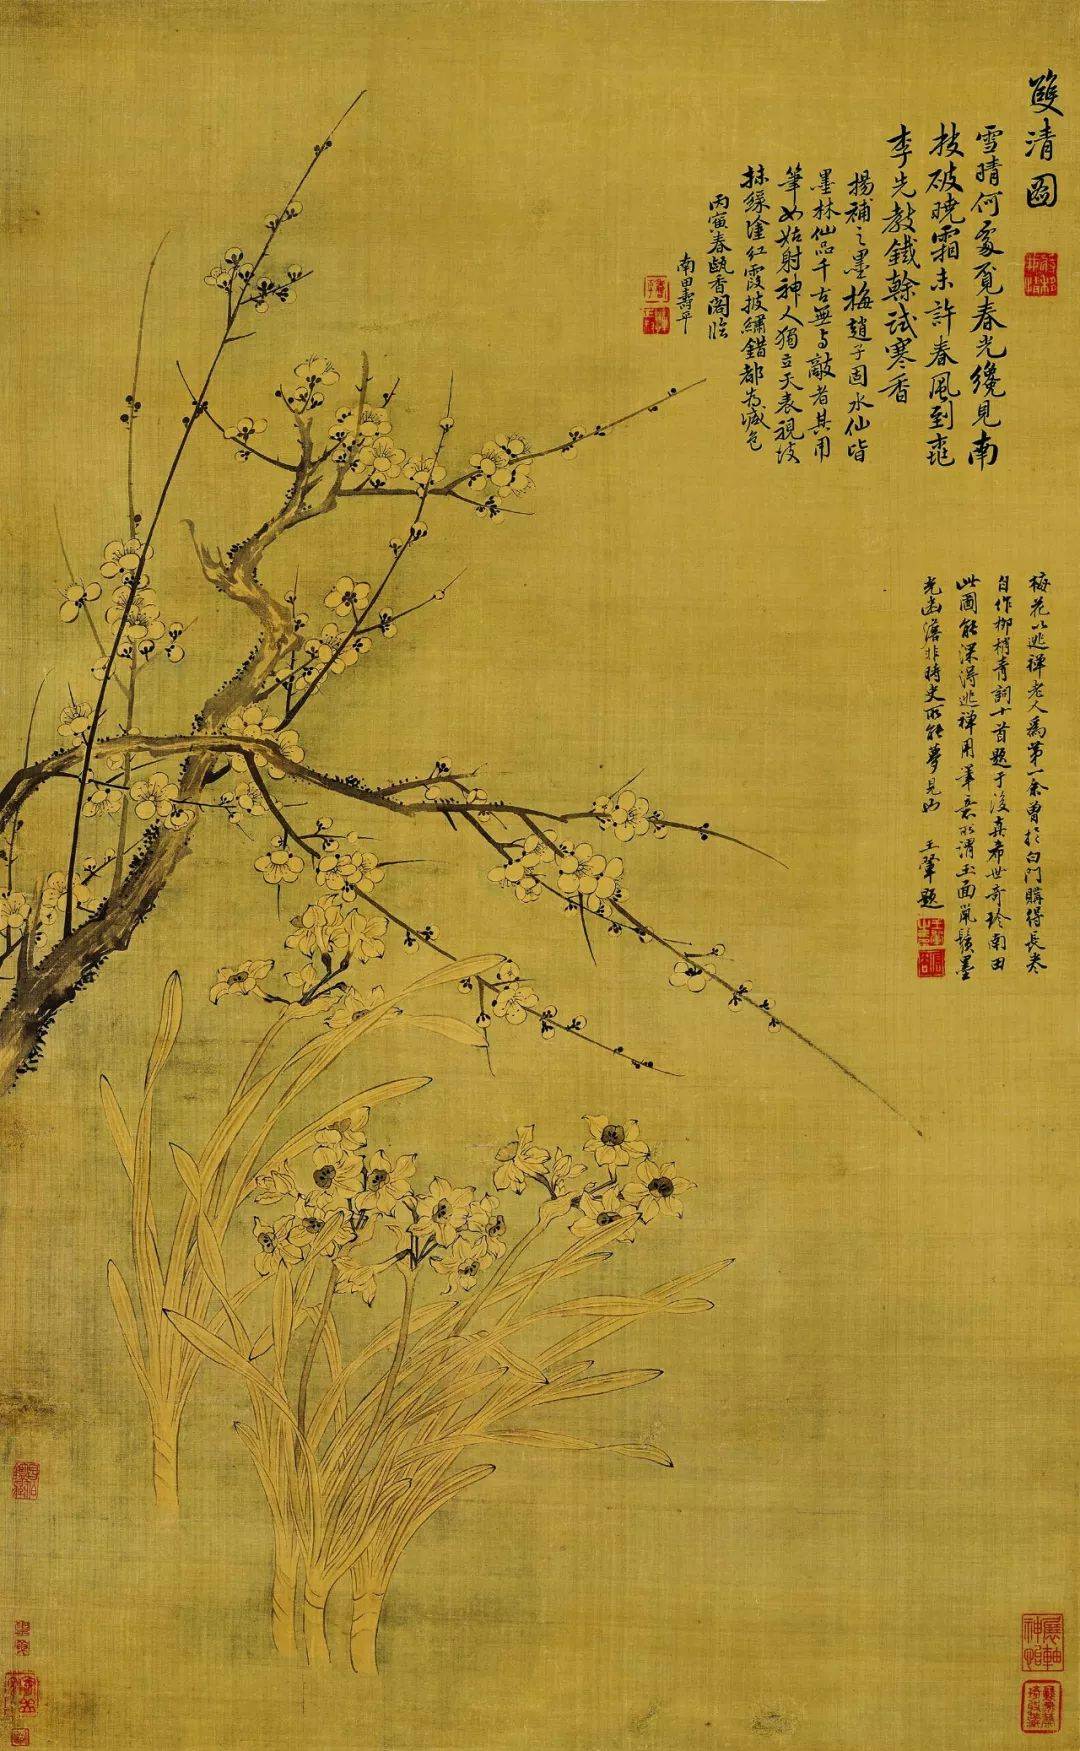 雙清圖
雪晴何處覓春光纔見南
枝破曉霜未許春風到桃
李先教鐵榦試寒香
揚補之墨梅趙子固水仙皆
墨林仙品千古無與敵者其用
筆如姑射神人獨立天表視彼
抹綠塗紅霞披繡錯都為減色
丙寅春甌香閣臨
南田壽平
梅花以逃禪老人為第一余曾於白門購得長卷
自作柳梢青詞十首題于後真希世奇珍南田
此圖能深得逃禪用筆意所謂玉面鼠鬚墨
光幽澹非時史所能夢見也 王翬題
展軸神怡